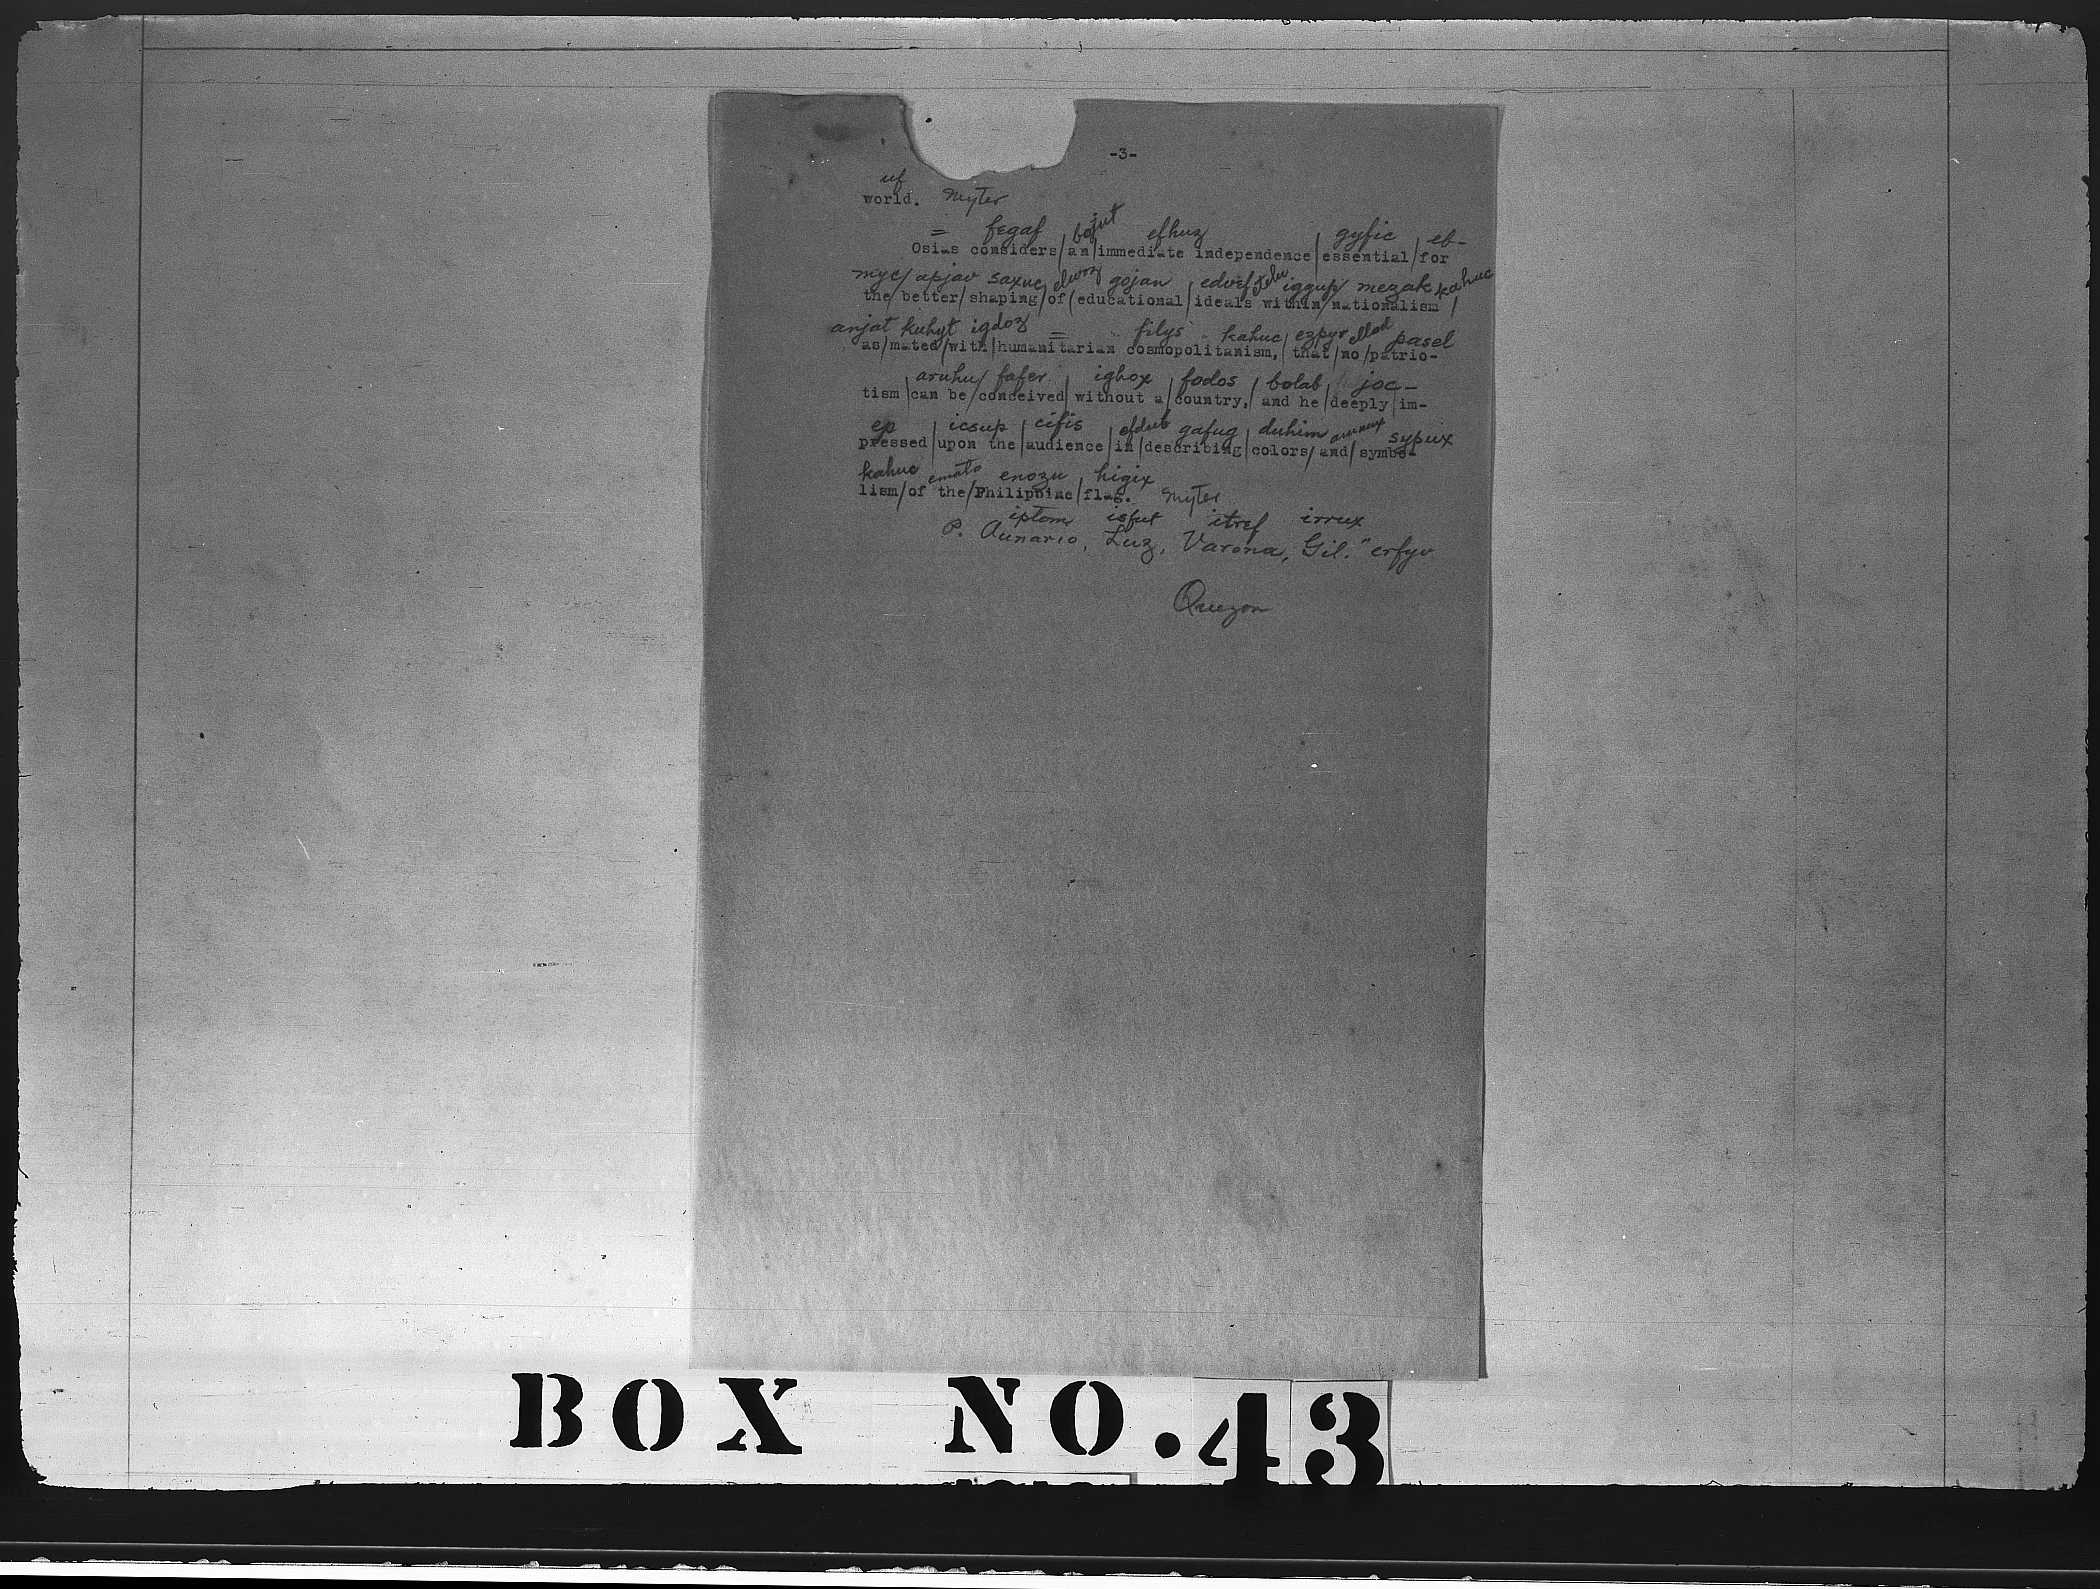 -3-
uf
world. myter
= fegaf bojut efhuz gyfic eb-
Osias considers/an/immediate independence/essential/for
myc/apjav saxuc gojan edvef iggup mezak kahuc
the/better/shaping/of/educational/ideals within/nationalism/
anjat kuhyt igdoz = filys - kahuc, ezpyr ellod pasel
as/mated/with/humanitarian cosmopolitanism,/that/no/patrio-
aruhu/fafer/igbox/fodos/bolab/joc-
tism/can be/conceived/without a/country,/and he/deeply/im-
ep icsup cifis efdub gafug duhim sypux
pressed/upon the/audience/in/describing/colors/and/symbo-
kahuc emato enozu, higix
lism/of the/Philippine/flag. myter
iptom isfut itref irrux
P. Aunario, Luz, Varona, Gil." erfyv
Quezon
BOX NO.43